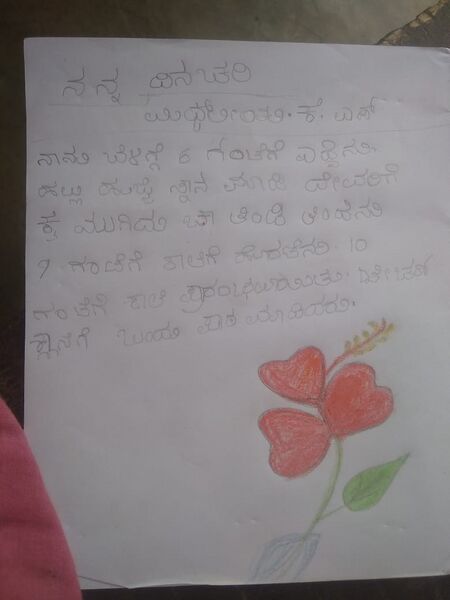 ನನ್ನ ದಿನಚರಿ
ಕೆ. ಎಸ್
ನಾನು ಬೆಳಗ್ಗೆ 6 ಗಂಟೆಗೆ ಎದ್ದೆನು.
ಹಲ್ಲು ಹುಜ್ಜಿ ಸ್ನಾನ ಮಾಡಿ ದೇವರಿಗೆ
ಕೈ ಮುಗಿದು ಚಾ ತಿಂಡಿ ತಿಂದೆನು
9 ಗಂಟೆಗೆ ಶಾಲೆಗೆ ಹೊರಟೆನು. 10
ಗಂಟೆಗೆ ಶಾಲೆ ಪ್ರಾರಂಭವಾಯಿತು. ಟೀಚರ್
ಕ್ಲಾಸಿಗೆ ಬಂದು ಪಾಠ ಮಾಡಿದರು.